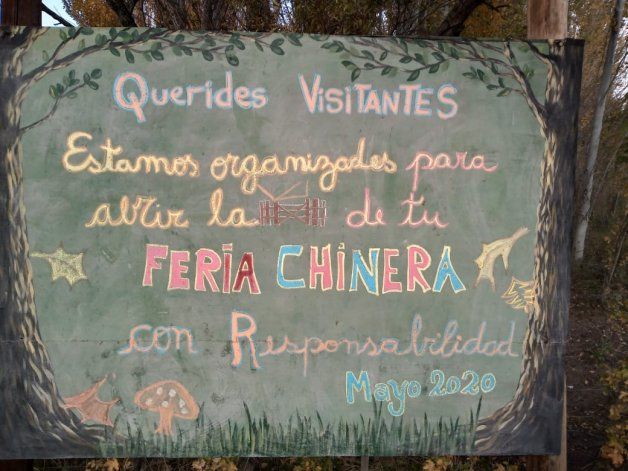 Querides VISITANTES
Estamos organizades para
abrir la de tu
FERIA CHINERA
con Responsabilidad
Mayo 2020